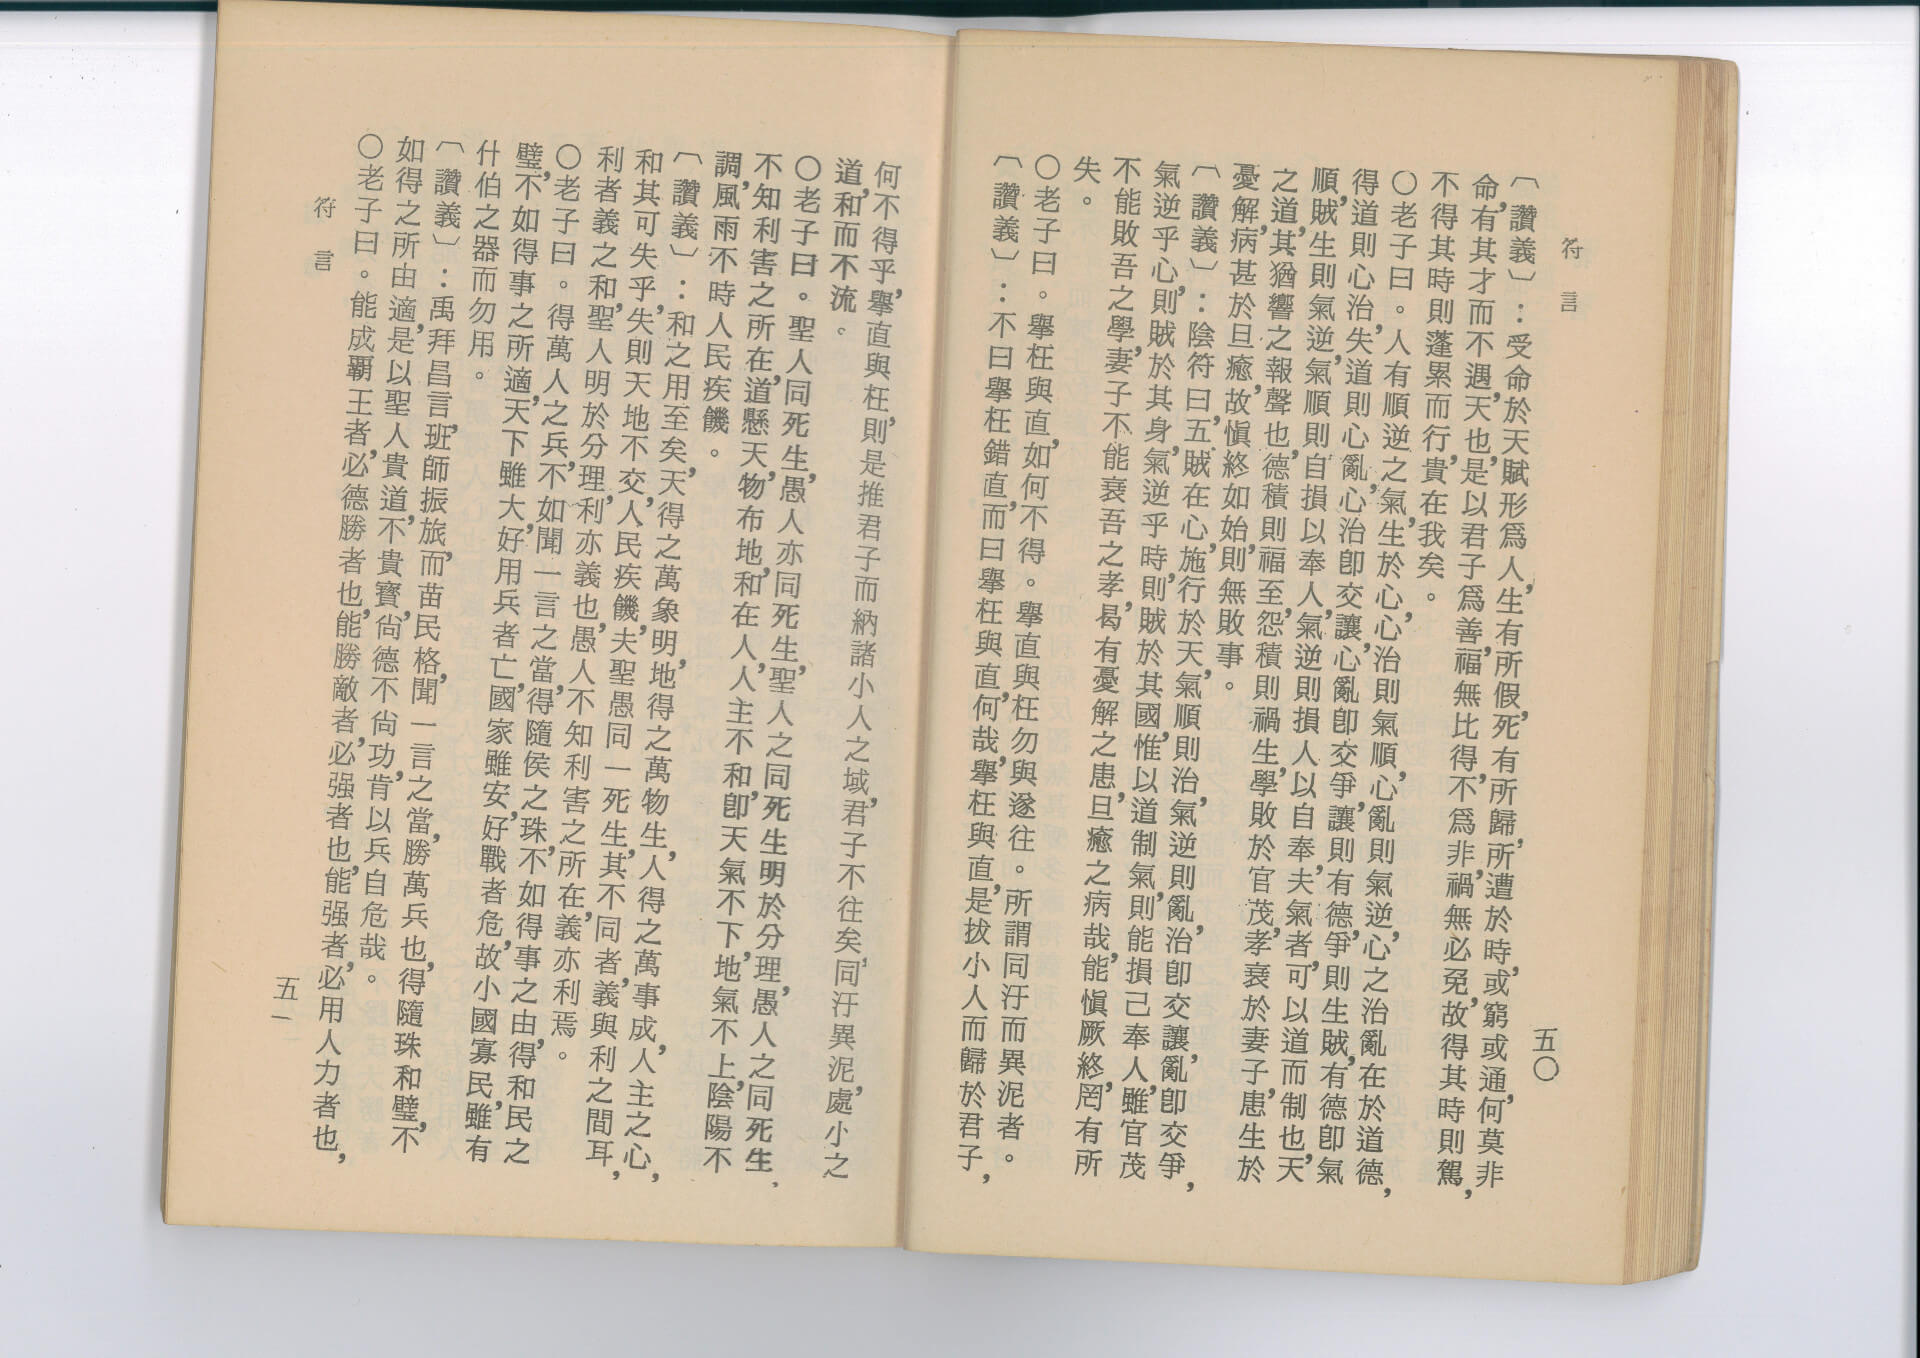 符言
五〇
〔讚義〕：受命於天賦形爲人，生有所假，死有所歸，所遭於時，或窮或通，何莫非
命，有其才而不遇，天也，是以君子爲善，福無比得，不爲非，禍無必免，故得其時則駕，
不得其時則蓬累而行，貴在我矣。
〇老子曰。人有順逆之氣，生於心，心治則氣順，心亂則氣逆，心之治亂在於道德，
得道則心治，失道則心亂，心治卽交讓，心亂卽交爭，讓則有德，爭則生賊，有德卽氣
順，賊生則氣逆，氣順則自損以奉人，氣逆則損人以自奉，夫氣者可以道而制也，天
之道，其猶響之報聲也，德積則福至，怨積則禍生，學敗於官茂，孝衰於妻子，患生於
憂解，病甚於旦癒，故愼終如始，則無敗事。
〔讚義〕：陰符曰，五賊在心，施行於天，氣順則治，氣逆則亂，治卽交讓，亂卽交爭，
氣逆乎心，則賊於其身，氣逆乎時，則賊於其國，惟以道制氣，則能損己奉人，雖官茂
不能敗吾之學，妻子不能衰吾之孝，曷有憂解之患，旦癒之病哉，能愼厥終，罔有所
失。
〇老子曰。擧枉與直，如何不得。擧直與枉，勿與遂往。所謂同汙而異泥者。
〔讚義〕：不曰擧枉錯直，而曰擧枉與直，何哉，擧枉與直，是拔小人而歸於君子，
何不得乎，擧直與枉，則是推君子而納諸小人之域，君子不往矣，同汙異泥，處小之
道，和而不流。
〇老子曰。聖人同死生，愚人亦同死生，聖人之同死生明於分理，愚人之同死生，
不知利害之所在，道懸天，物布地，和在人，人主不和，卽天氣不下，地氣不上，陰陽不
調，風雨不時人民疾饑。
〔讚義〕：和之用至矣，天，得之萬象明，地得之萬物生，人得之萬事成，人主之心，
和其可失乎，失則天地不交，人民疾饑，夫聖愚同一死生，其不同者，義與利之間耳，
利者義之和，聖人明於分理，利亦義也，愚人不知利害之所在，義亦利焉。
〇老子曰。得萬人之兵，不如聞一言之當，得隨侯之珠，不如得事之由，得和民之
璧，不如得事之所適，天下雖大，好用兵者亡，國家雖安，好戰者危，故小國寡民，雖有
什伯之器而勿用。
〔讚義〕：禹拜昌言，班師振旅，而苗民格，聞一言之當，勝萬兵也，得隨珠和璧，不
如得之所由適，是以聖人貴道，不貴寳，尙德不尙功，肯以兵自危哉。
〇老子曰。能成覇王者，必德勝者也，能勝敵者，必强者也，能强者，必用人力者也，
符言
五一